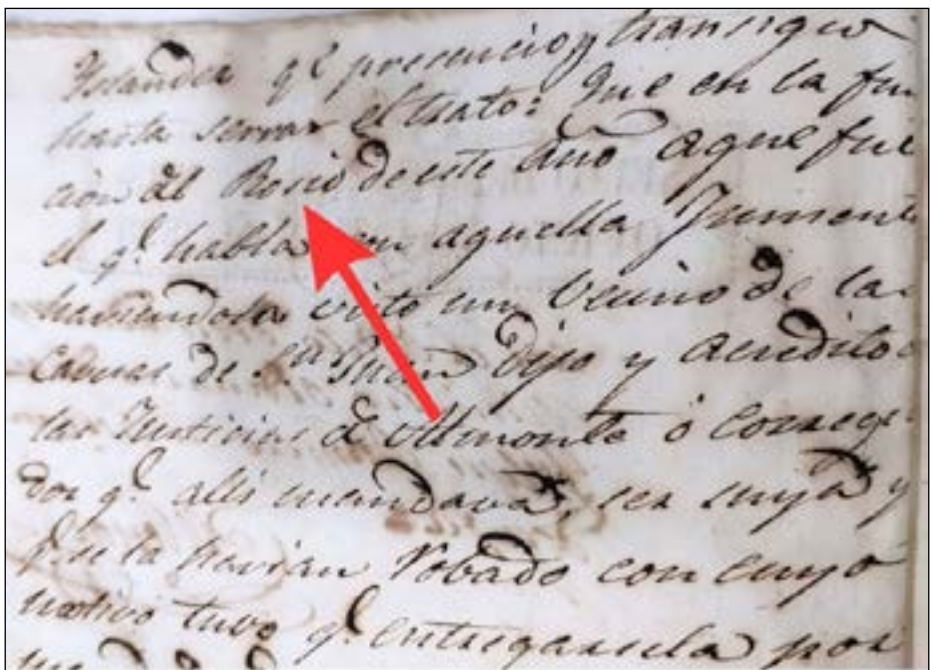 Yslandez qᵉ presencio y transigio
hasta serrar el trato: Que en la fun
ción del Rocio de este año aque fue
el qᵉ habla con aquella Jument
haviendola visto un Vecino de la
Cabezas de Sⁿ Juan Dijo y acredito
las Justicias de Almonte ó correge
dor qᵉ alli mandava, ser suya y
qᵉ se la havian robado con cuyo
motivo tuvo qᵉ entregarsela por